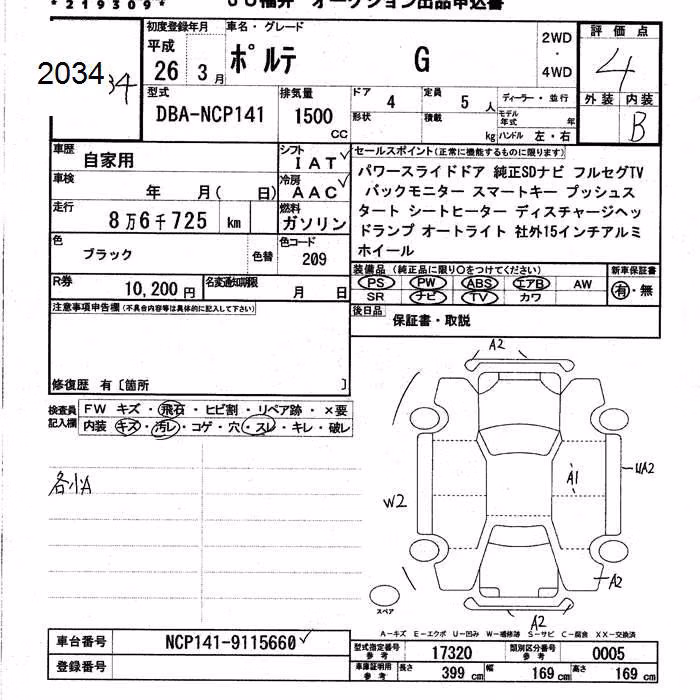 *219309*
JU福井 オークション出品申込書
2034
34
初度登録年月 車名・グレード
平成 26 3月
ポルテ G
2WD ・ 4WD
評価点
4
外装 内装
B
型式 DBA-NCP141
排気量 1500 CC
ドア 4
定員 5 人
ディーラー ・ 並行
形状
積載 kg
モデル年式 年
ハンドル 左・右
車歴 自家用
シフト IAT✓
車検 年 月( 日)
冷房 AAC✓
走行 8万6千725 km
燃料 ガソリン
色 ブラック 色替
色コード 209
R券 10,200円
名変通知期限 月 日
セールスポイント(正常に機能するものに限ります)
パワースライドドア 純正SDナビ フルセグTV
バックモニター スマートキー プッシュス
タート シートヒーター ディスチャージヘッ
ドランプ オートライト 社外15インチアルミ
ホイール
装備品 (純正品に限り○をつけてください)
新車保証書
PS PW ABS エアB AW
有・無
SR ナビ TV カワ
後日品 保証書・取説
注意事項申告欄(不具合内容等は具体的に記入して下さい)
修復歴 有〔箇所 〕
検査員記入欄
FW キズ・飛石・ヒビ割・リペア跡・×要
内装 キズ・汚レ・コゲ・穴・スレ・キレ・破レ
各小A
A2
A1
UA2
W2
A2
スペア
A2
A―キズ E―エクボ U―凹み W―補修跡 S―サビ C―腐食 XX―交換済
車台番号 NCP141-9115660✓
登録番号
型式指定番号 参考 17320
類別区分番号 参考 0005
車庫証明用 参考 長さ 399 cm 幅 169 cm 高さ 169 cm